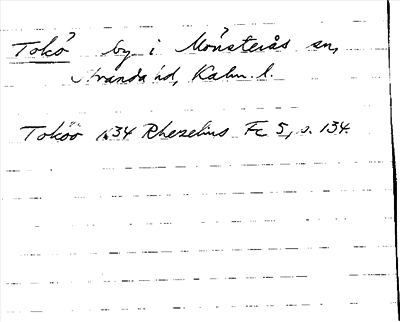 Tokö by i Mönsterås sn,
Stranda hd, Kalm. l.
Toköö 1634 Rhezelius Fc 5, s. 134.